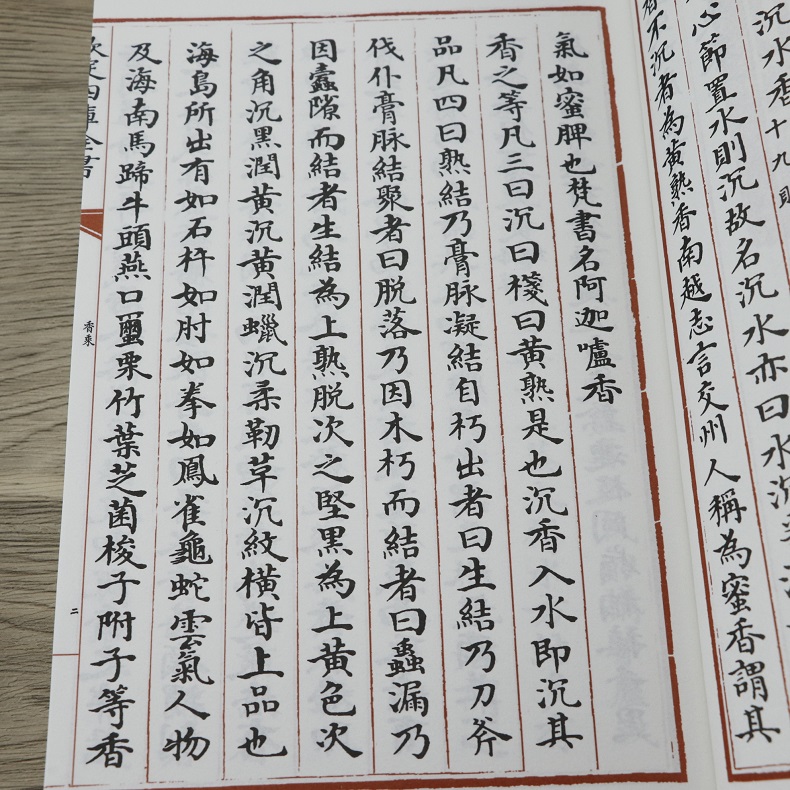 沉水香十九則
心節置水則沉故名沉水亦曰水沉半
不沉者為黃熟香南越志言交州人稱為蜜香謂其
氣如蜜脾也梵書名阿迦嚧香
香之等凡三曰沉曰棧曰黃熟是也沉香入水即沉其
品凡四曰熟結乃膏脉凝結自朽出者曰生結乃刀斧
伐仆膏脉結聚者曰脫落乃因木朽而結者曰蟲漏乃
因蠹隙而結者生結為上熟脫次之堅黑為上黃色次
之角沉黑潤黃沉黃潤蠟沉柔靭草沉紋橫皆上品也
海島所出有如石杵如肘如拳如鳳雀龜蛇雲氣人物
及海南馬蹄牛頭燕口繭栗竹葉芝菌梭子附子等香
欽定四庫全書
香乘
二